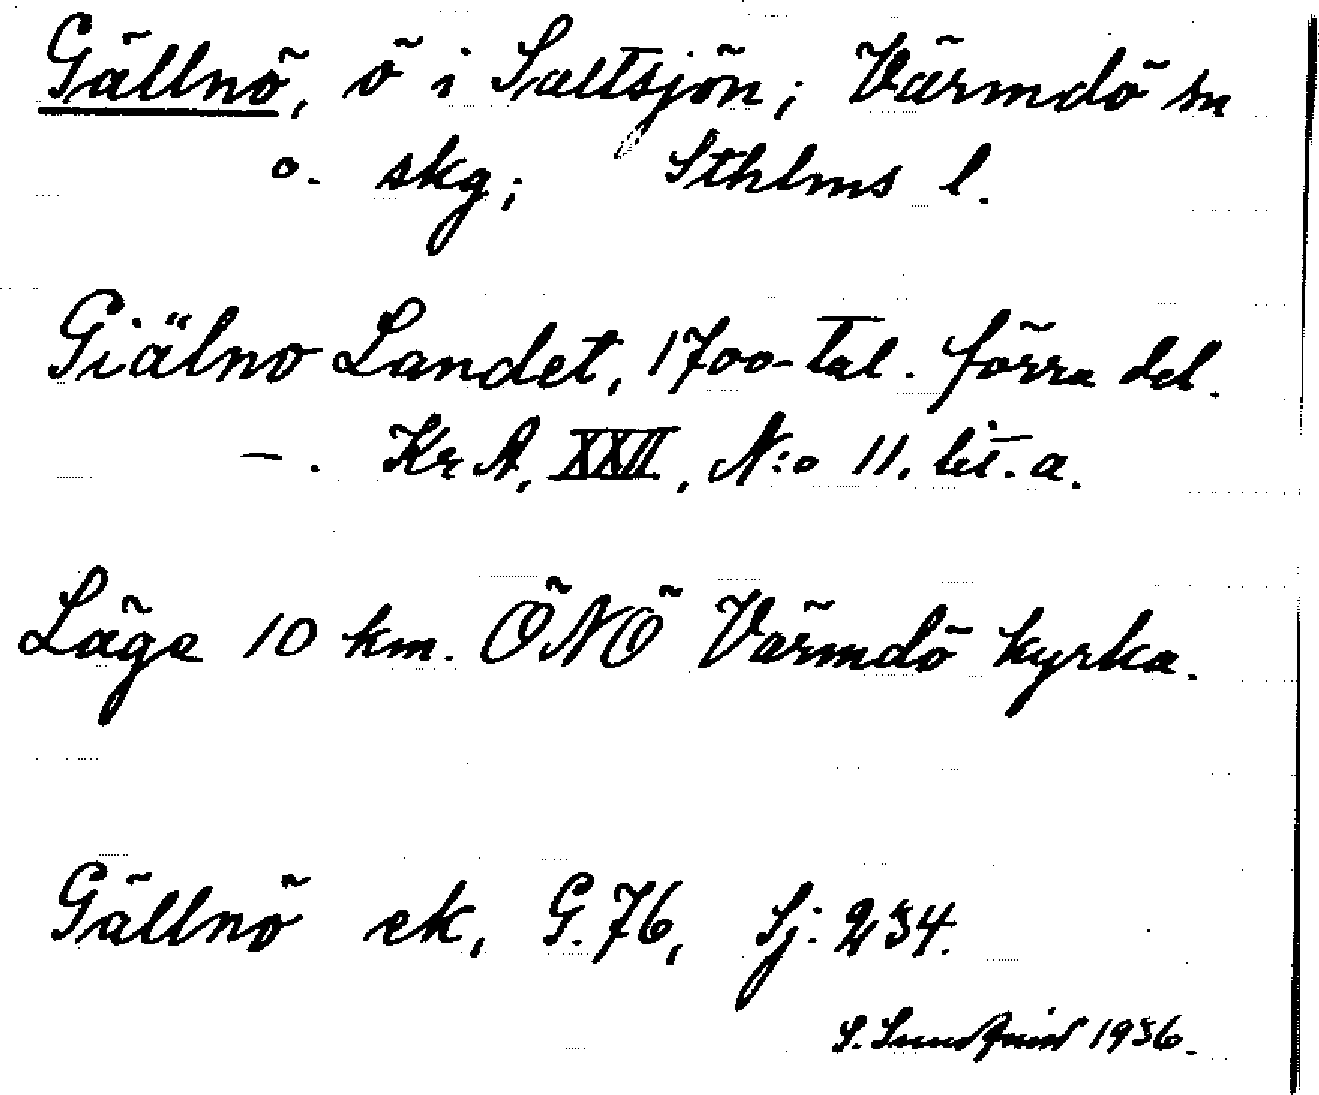 Gällnö, ö i Saltsjön; Värmdö sn
o. skg; Sthlms l.
Giälno Landet, 1700-tal. förra del.
— . KrA, XXII, N:o 11. lit. a.
Läge 10 km. ÖNÖ Värmdö kyrka.
Gällnö ek, G.76, Sj: 234.
S. Sundqvist 1936.